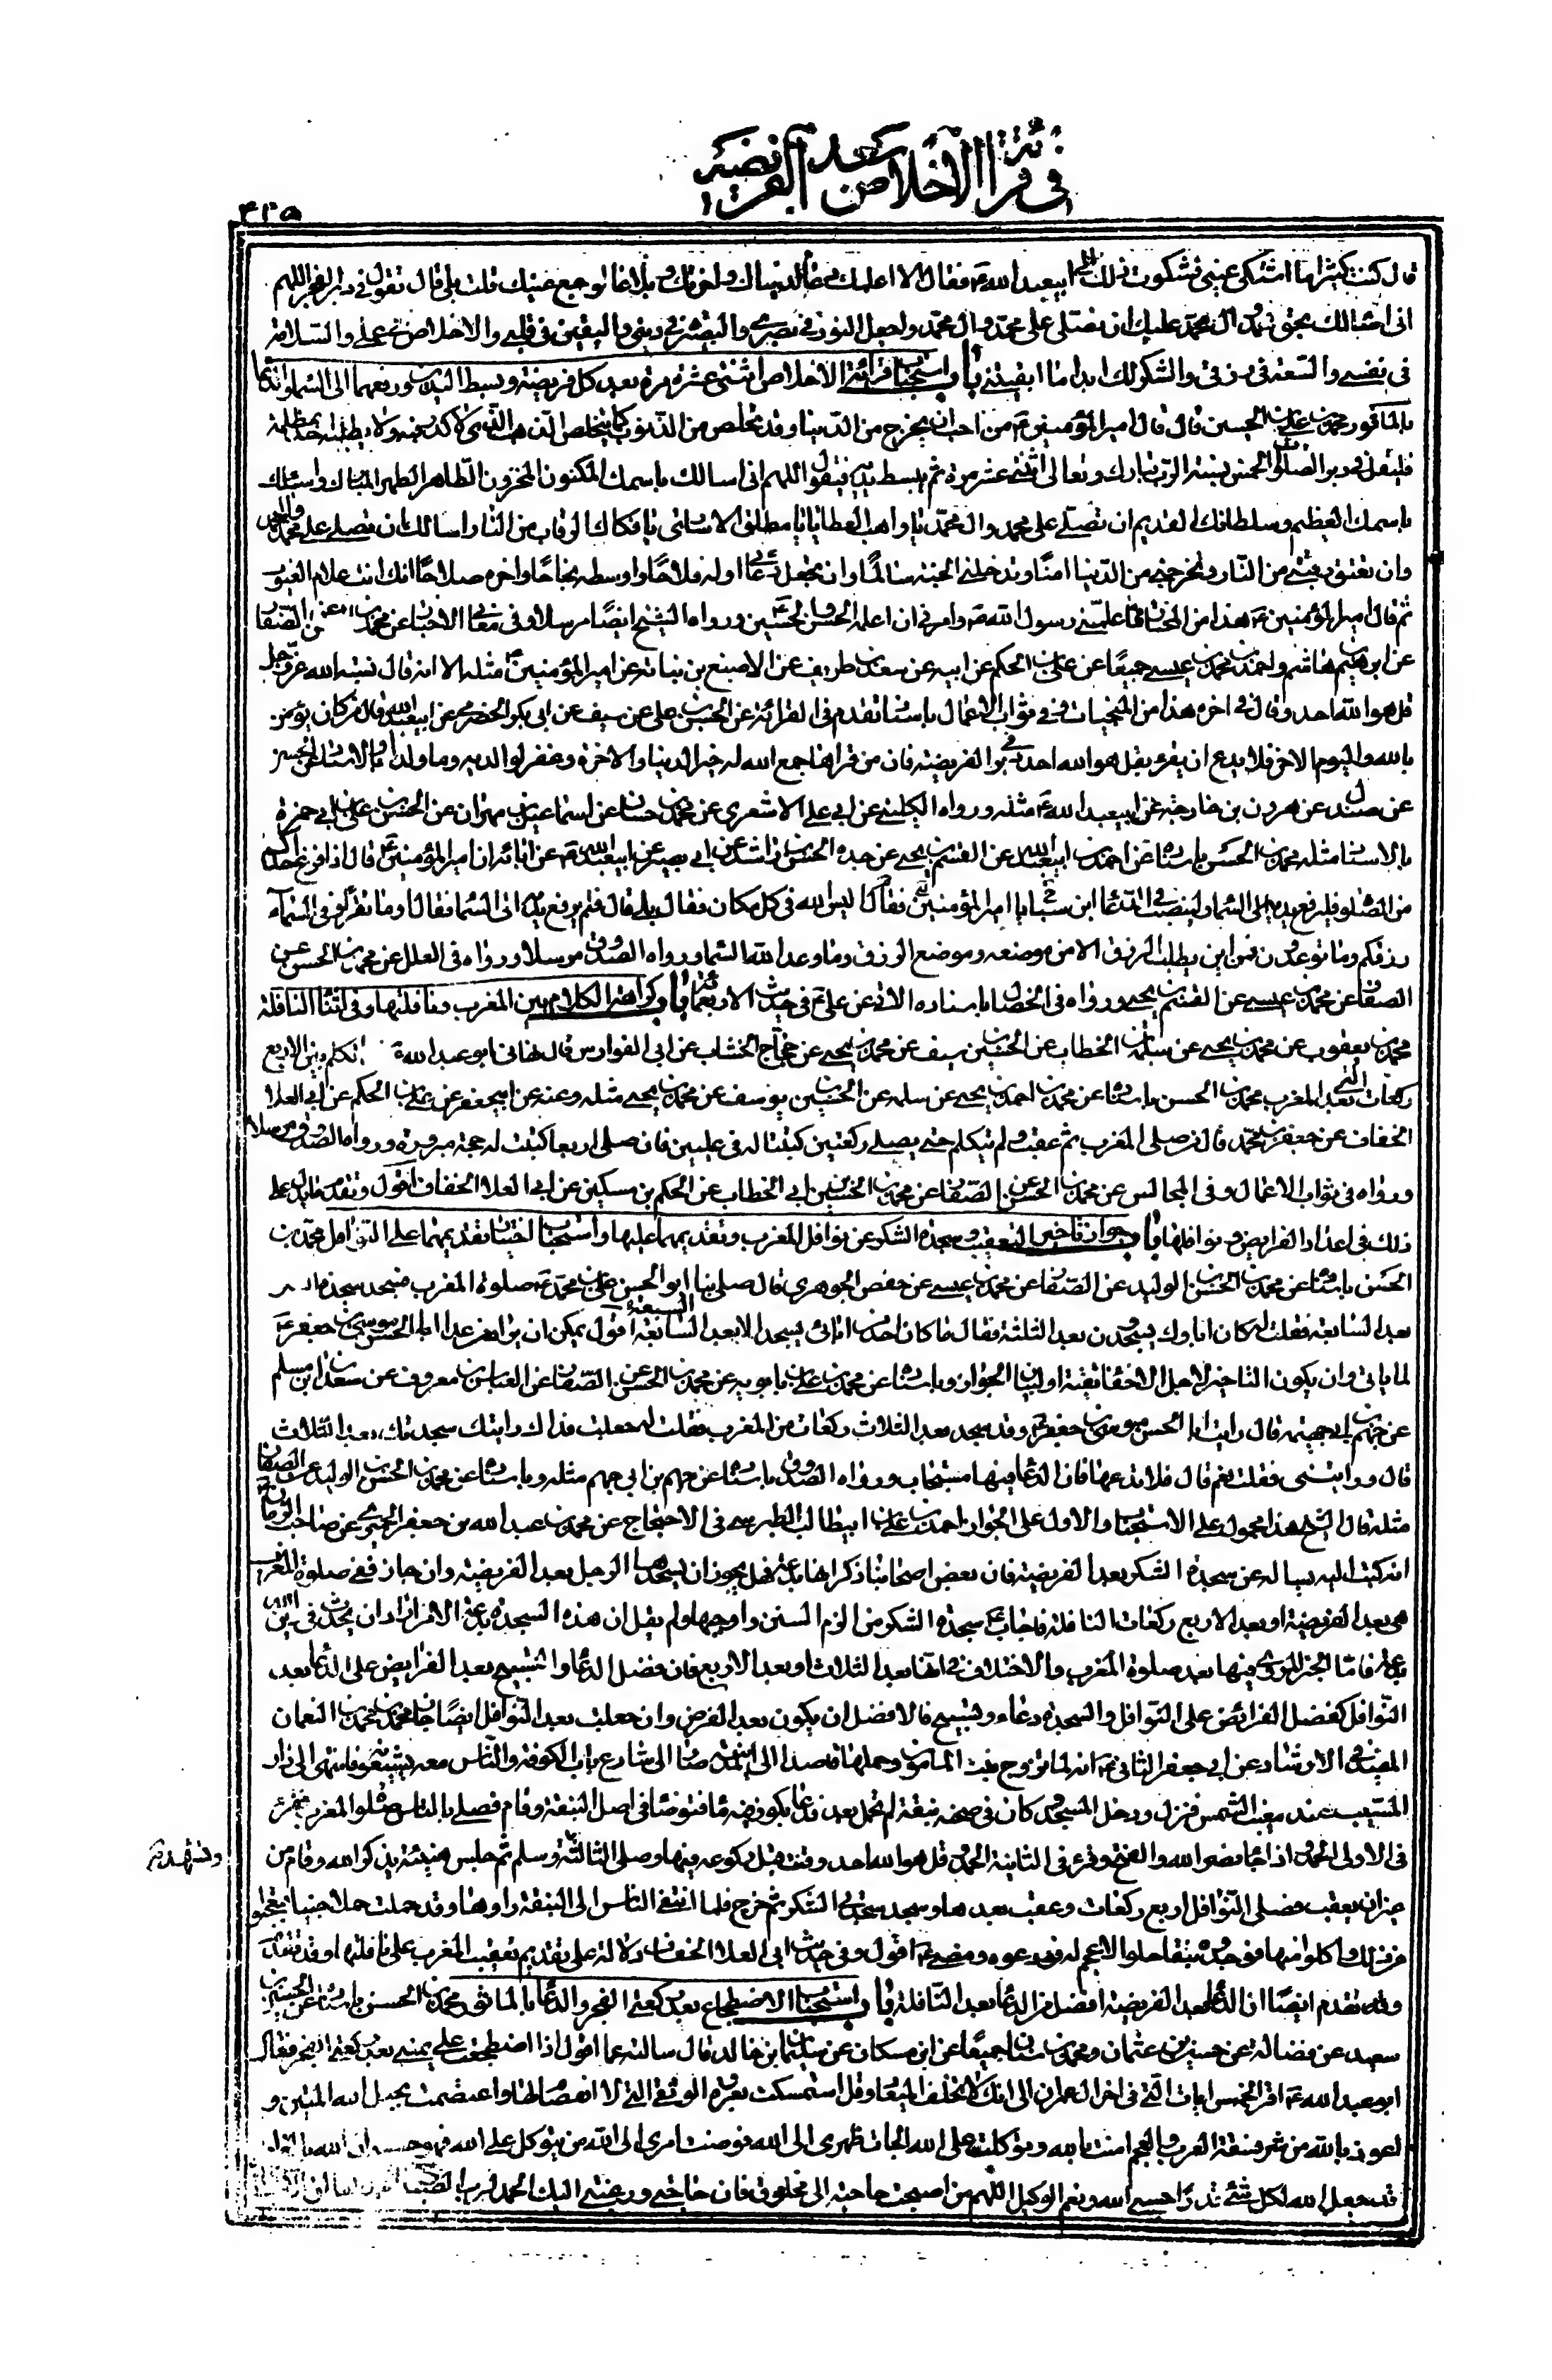 في قرائة الاخلاص بعد الفريضة
٤٢٥
قال كنت كثيرا ما اشتكى عينى فشكوت ذلك الى ابيعبد الله ع فقال الا اعلمك دعاء لدنياك واخرتك وبلاغا لوجع عينيك قلت بلى قال تقول في دبر الفجر اللهم
انى اسالك بحق محمد وال محمد عليك ان تصلى على محمد وال محمد واجعل النور في بصرى والبصيرة في دينى واليقين في قلبى والاخلاص في عملى والسلامة
في نفسى والسعة في رزقى والشكر لك ابدا ما ابقيتنى باب استحباب قرائة الاخلاص اثنتى عشرة مرة بعد كل فريضة وبسط اليدين ورفعهما الى السماء والدعا
بالماثور محمد بن على بن الحسين قال قال امير المؤمنين ع من احب ان يخرج من الدنيا وقد تخلص من الذنوب كما يتخلص الذهب الذى لا كدر فيه ولا يطلبه احد بمظلمة
فليقل في دبر الصلوات الخمس نسبة الرب تبارك وتعالى اثنتى عشر مرة ثم يبسط يديه فيقول اللهم انى اسالك باسمك المكنون المخزون الطاهر الطهر المبارك واسئلك
باسمك العظيم وسلطانك القديم ان تصلى على محمد وال محمد يا واهب العطايا يا مطلق الاسارى يا فكاك الرقاب من النار اسالك ان تصلى على محمد وال محمد
وان تعتق رقبتى من النار وتخرجنى من الدنيا امنا وتدخلنى الجنة سالما وان تجعل دعائى اوله فلاحا واوسطه نجاحا واخره صلاحا انك انت علام الغيوب
ثم قال امير المؤمنين ع هذا من المخبيات مما علمنى رسول الله ص وامرنى ان اعلمه الحسن والحسين ورواه الشيخ ايضا مرسلا وفي معانى الاخبار عن محمد بن الحسن عن الصفار
عن ابرهيم بن هاشم واحمد بن محمد بن عيسى جميعا عن على بن الحكم عن ابيه عن سعد بن طريف عن الاصبغ بن نباتة عن امير المؤمنين ع مثله الا انه قال نسبة الله عز وجل
قل هو الله احد وقال في اخره هذا من المنجيات وفي ثواب الاعمال باسناد تقدم في القرائة عن الحسن بن على عن سيف عن ابى بكر الحضرمى عن ابيعبد الله قال من كان يؤمن
بالله واليوم الاخر فلا يدع ان يقرء بقل هو الله احد في دبر الفريضة فان من قراها جمع الله له خير الدنيا والاخرة وغفر له ولوالديه وما ولدا وبالاسناد عن الحسن
عن صندل عن هرون بن خارجة عن ابيعبد الله ع مثله ورواه الكلينى عن ابى على الاشعرى عن محمد بن حسان عن اسماعيل بن مهران عن الحسن بن على بن ابى حمزة
بالاسناد مثله محمد بن الحسن باسناده عن احمد بن ابيعبد الله عن القسم بن يحيى عن جده الحسن بن راشد عن ابى بصير عن ابيعبد الله ع عن ابائه ان امير المؤمنين ع قال اذا فرغ احدكم
من الصلوة فليرفع يديه الى السماء ولينصب في الدعاء فقال ابن سبا يا امير المؤمنين اليس الله في كل مكان فقال بلى قال فلم يرفع يديه الى السماء فقال اوما تقرأ وفي السماء
رزقكم وما توعدون فمن اين يطلب الرزق الا من موضعه وموضع الرزق وما وعد الله السماء ورواه الصدوق مرسلا ورواه في العلل عن محمد بن الحسن عن
الصفار عن محمد بن عيسى عن القسم بن يحيى ورواه في الخصال باسناده الاتى عن على ع في حديث الاربعمائة باب كراهة الكلام بين المغرب ونافلتها وفي اثناء النافلة
محمد بن يعقوب عن محمد بن يحيى عن سلمة بن الخطاب عن الحسين بن سيف عن محمد بن يحيى عن حجاج الخشاب عن ابى الفوارس قال نهانى ابو عبد الله ع ان اتكلم بين الاربع
ركعات التى بعد المغرب محمد بن الحسن باسناده عن محمد بن احمد بن يحيى عن سلمة عن الحسين بن يوسف عن محمد بن يحيى مثله وعنه عن ابيجعفر عن على بن الحكم عن ابى العلا
الخفاف عن جعفر بن محمد قال من صلى المغرب ثم عقب ولم يتكلم حتى يصلى ركعتين كتبتا له في عليين فان صلى اربعا كتبت له حجة مبرورة ورواه الصدوق مرسلا
ورواه في ثواب الاعمال وفي المجالس عن محمد بن الحسن عن الصفار عن محمد بن الحسين بن ابى الخطاب عن الحكم بن مسكين عن ابى العلا الخفاف اقول وتقدم ما يدل على
ذلك في اعداد الفرايض ونوافلها باب جواز تاخير التعقيب وسجدة الشكر عن نوافل المغرب وتقديمهما عليها واستحباب اختيار تقديمهما على النوافل محمد بن
الحسن باسناده عن محمد بن الحسن بن الوليد عن الصفار عن محمد بن عيسى عن حفص الجوهرى قال صلى بنا ابو الحسن على بن محمد ع صلوة المغرب فسجد سجدة الشكر
بعد السابعة فقلت له كان اباؤك يسجدون بعد الثلثة فقال ما كان احد من ابائى يسجد الا بعد السابعة اقول يمكن ان يراد غير ابى الحسن موسى بن جعفر ع
لما ياتى وان يكون التاخير لاجل الاخفاء تقية او لبيان الجواز وباسناده عن محمد بن على بن بابويه عن محمد بن الحسن عن الصفار عن العباس بن معروف عن سعدان بن مسلم
عن جهم بن ابى جهيمة قال رايت ابا الحسن موسى بن جعفر ع وقد سجد بعد الثلاث ركعات من المغرب فقلت له جعلت فداك رايتك سجدت بعد الثلاث
قال ورايتنى فقلت نعم قال فلا تدعها فان الدعاء فيها مستجاب ورواه الصدوق باسناده عن جهم بن ابى جهم مثله وباسناده عن محمد بن الحسن بن الوليد عن الصفار
مثله قال الشيخ هذا محمول على الاستحباب والاول على الجواز احمد بن على بن ابيطالب الطبرسى في الاحتجاج عن محمد بن عبد الله بن جعفر الحميرى عن صاحب الزمان
انه كتب اليه يساله عن سجدة الشكر بعد الفريضة فان بعض اصحابنا ذكر انها بدعة فهل يجوز ان يسجدها الرجل بعد الفريضة وان جاز ففي صلوة المغرب
هى بعد الفريضة او بعد الاربع ركعات النافلة فاجاب ع سجدة الشكر من الزم السنن واوجبها ولم يقل ان هذه السجدة بدعة الا من اراد ان يحدث في دين الله
بدعة فاما الخبر المروى فيها بعد صلوة المغرب والاختلاف في انها بعد الثلاث او بعد الاربع فان فضل الدعاء والتسبيح بعد الفرايض على الدعاء بعد
النوافل كفضل الفرائض على النوافل والسجدة دعاء وتسبيح فالافضل ان يكون بعد الفرض وان جعلت بعد النوافل ايضا جاز محمد بن محمد بن النعمان
المفيد في الارشاد عن ابى جعفر الثانى ع انه لما تزوج بنت المامون وحملها قاصدا الى المدينة صار الى شارع باب الكوفة والناس معه يشيعونه فانتهى الى دار
المسيب عند مغيب الشمس فنزل ودخل المسجد وكان في صحنه نبقة لم تحمل بعد فدعا بكوز فيه ماء فتوضا في اصل النبقة وقام فصلى بالناس صلوة المغرب فقرء
في الاولى الحمد واذا جاء نصر الله والفتح وقرء في الثانية الحمد وقل هو الله احد وقنت قبل ركوعه فيها وصلى الثالثة وسلم ثم جلس هنيئة يذكر الله وقام من
وتشهد
غير ان يعقب فصلى النوافل اربع ركعات وعقب بعدها وسجد سجدتى الشكر ثم خرج فلما انتهى الناس الى النبقة راوها وقد حملت حملا جنيا فتعجبوا
من ذلك واكلوا منها فوجدوه نبقا حلوا لا عجم له فودعوه ومضى ع اقول وفي حديث ابى العلا الخفاف دلالة على تقديم تعقيب المغرب على نافلتها وقد تقدم
وقد تقدم ايضا ان الدعاء بعد الفريضة افضل من الدعاء بعد النافلة باب استحباب الاضطجاع بعد ركعتى الفجر والدعاء بالماثور محمد بن الحسن باسناده عن الحسين بن
سعيد عن فضالة عن حسين بن عثمان ومحمد بن سنان جميعا عن ابن مسكان عن سليمان بن خالد قال سالته عما اقول اذا اضطجعت على يمينى بعد ركعتى الفجر فقال
ابو عبد الله ع اقرأ الخمس ايات التى في اخر ال عمران الى انك لا تخلف الميعاد وقل استمسكت بعروة الله الوثقى التى لا انفصام لها واعتصمت بحبل الله المتين و
اعوذ بالله من شر فسقة العرب والعجم امنت بالله وتوكلت على الله الجات ظهرى الى الله فوضت امرى الى الله من يتوكل على الله فهو حسبه ان الله بالغ امره
قد جعل الله لكل شئ قدرا حسبى الله ونعم الوكيل اللهم من اصبحت حاجته الى مخلوق فان حاجتى ورغبتى اليك الحمد لرب الصباح